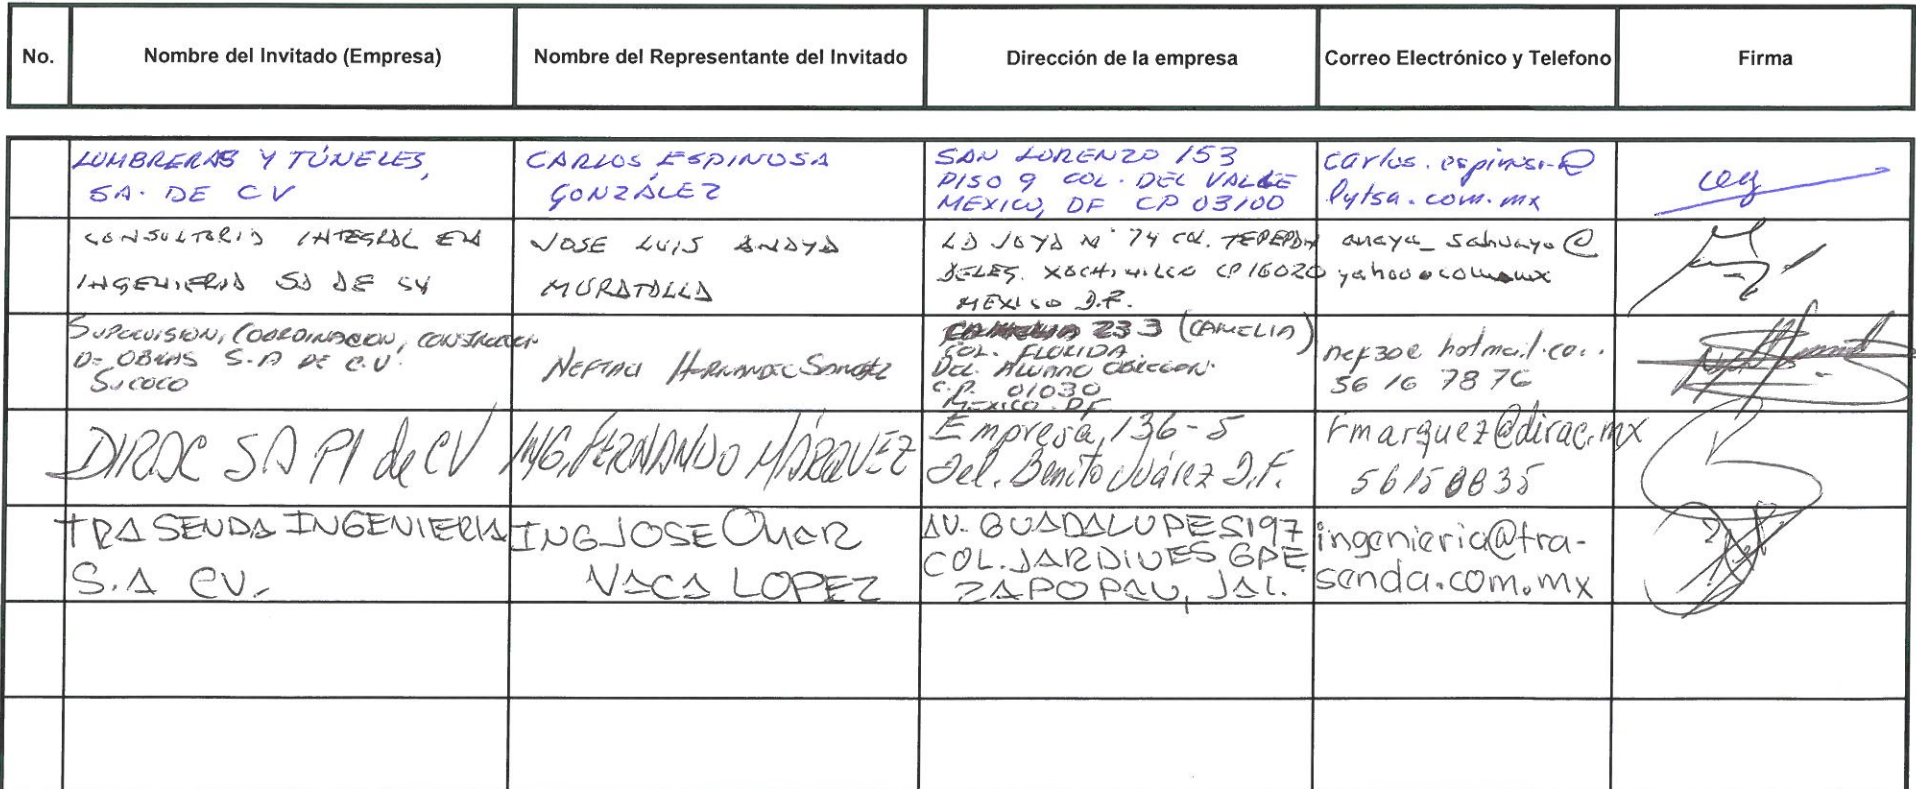 No.
Nombre del Invitado (Empresa)
Nombre del Representante del Invitado
Dirección de la empresa
Correo Electrónico y Telefono
Firma
LUMBRERAS Y TÚNELES,
SA. DE CV
CARLOS ESPINOSA
GONZÁLEZ
SAN LORENZO 153
PISO 9 COL. DEL VALLE
MEXICO, DF CP 03100
carlos.espinosa@
lytsa.com.mx
CONSULTORIA INTEGRAL EN
INGENIERIA SA DE CV
JOSE LUIS ANAYA
MURATALLA
LA JOYA Nº 74 COL. TEPEPAN
DELEG. XOCHIMILCO CP 16020
MEXICO D.F.
anaya_sahuayo@
yahoo.com.mx
SUPERVISION, COORDINACION, CONSTRUCCION
DE OBRAS S.A DE C.V.
SUCOCO
NEFTALI HERNANDEZ SANCHEZ
233 (CAMELIA)
COL. FLORIDA
DEL. ALVARO OBREGON.
C.P. 01030
MEXICO DF
hotmail.co..
56 16 78 76
DIRAC SA PI de CV
ING. FERNANDO MÁRQUEZ
Empresa, 136-5
Del. Benito Juárez D.F.
fmarquez@dirac.mx
56158835
TRASENDA INGENIERIA
S.A CV.
ING JOSE OMAR
VACA LOPEZ
AV. GUADALUPE 5197
COL. JARDINES GPE
ZAPOPAN, JAL.
ingenieria@tra-
senda.com.mx